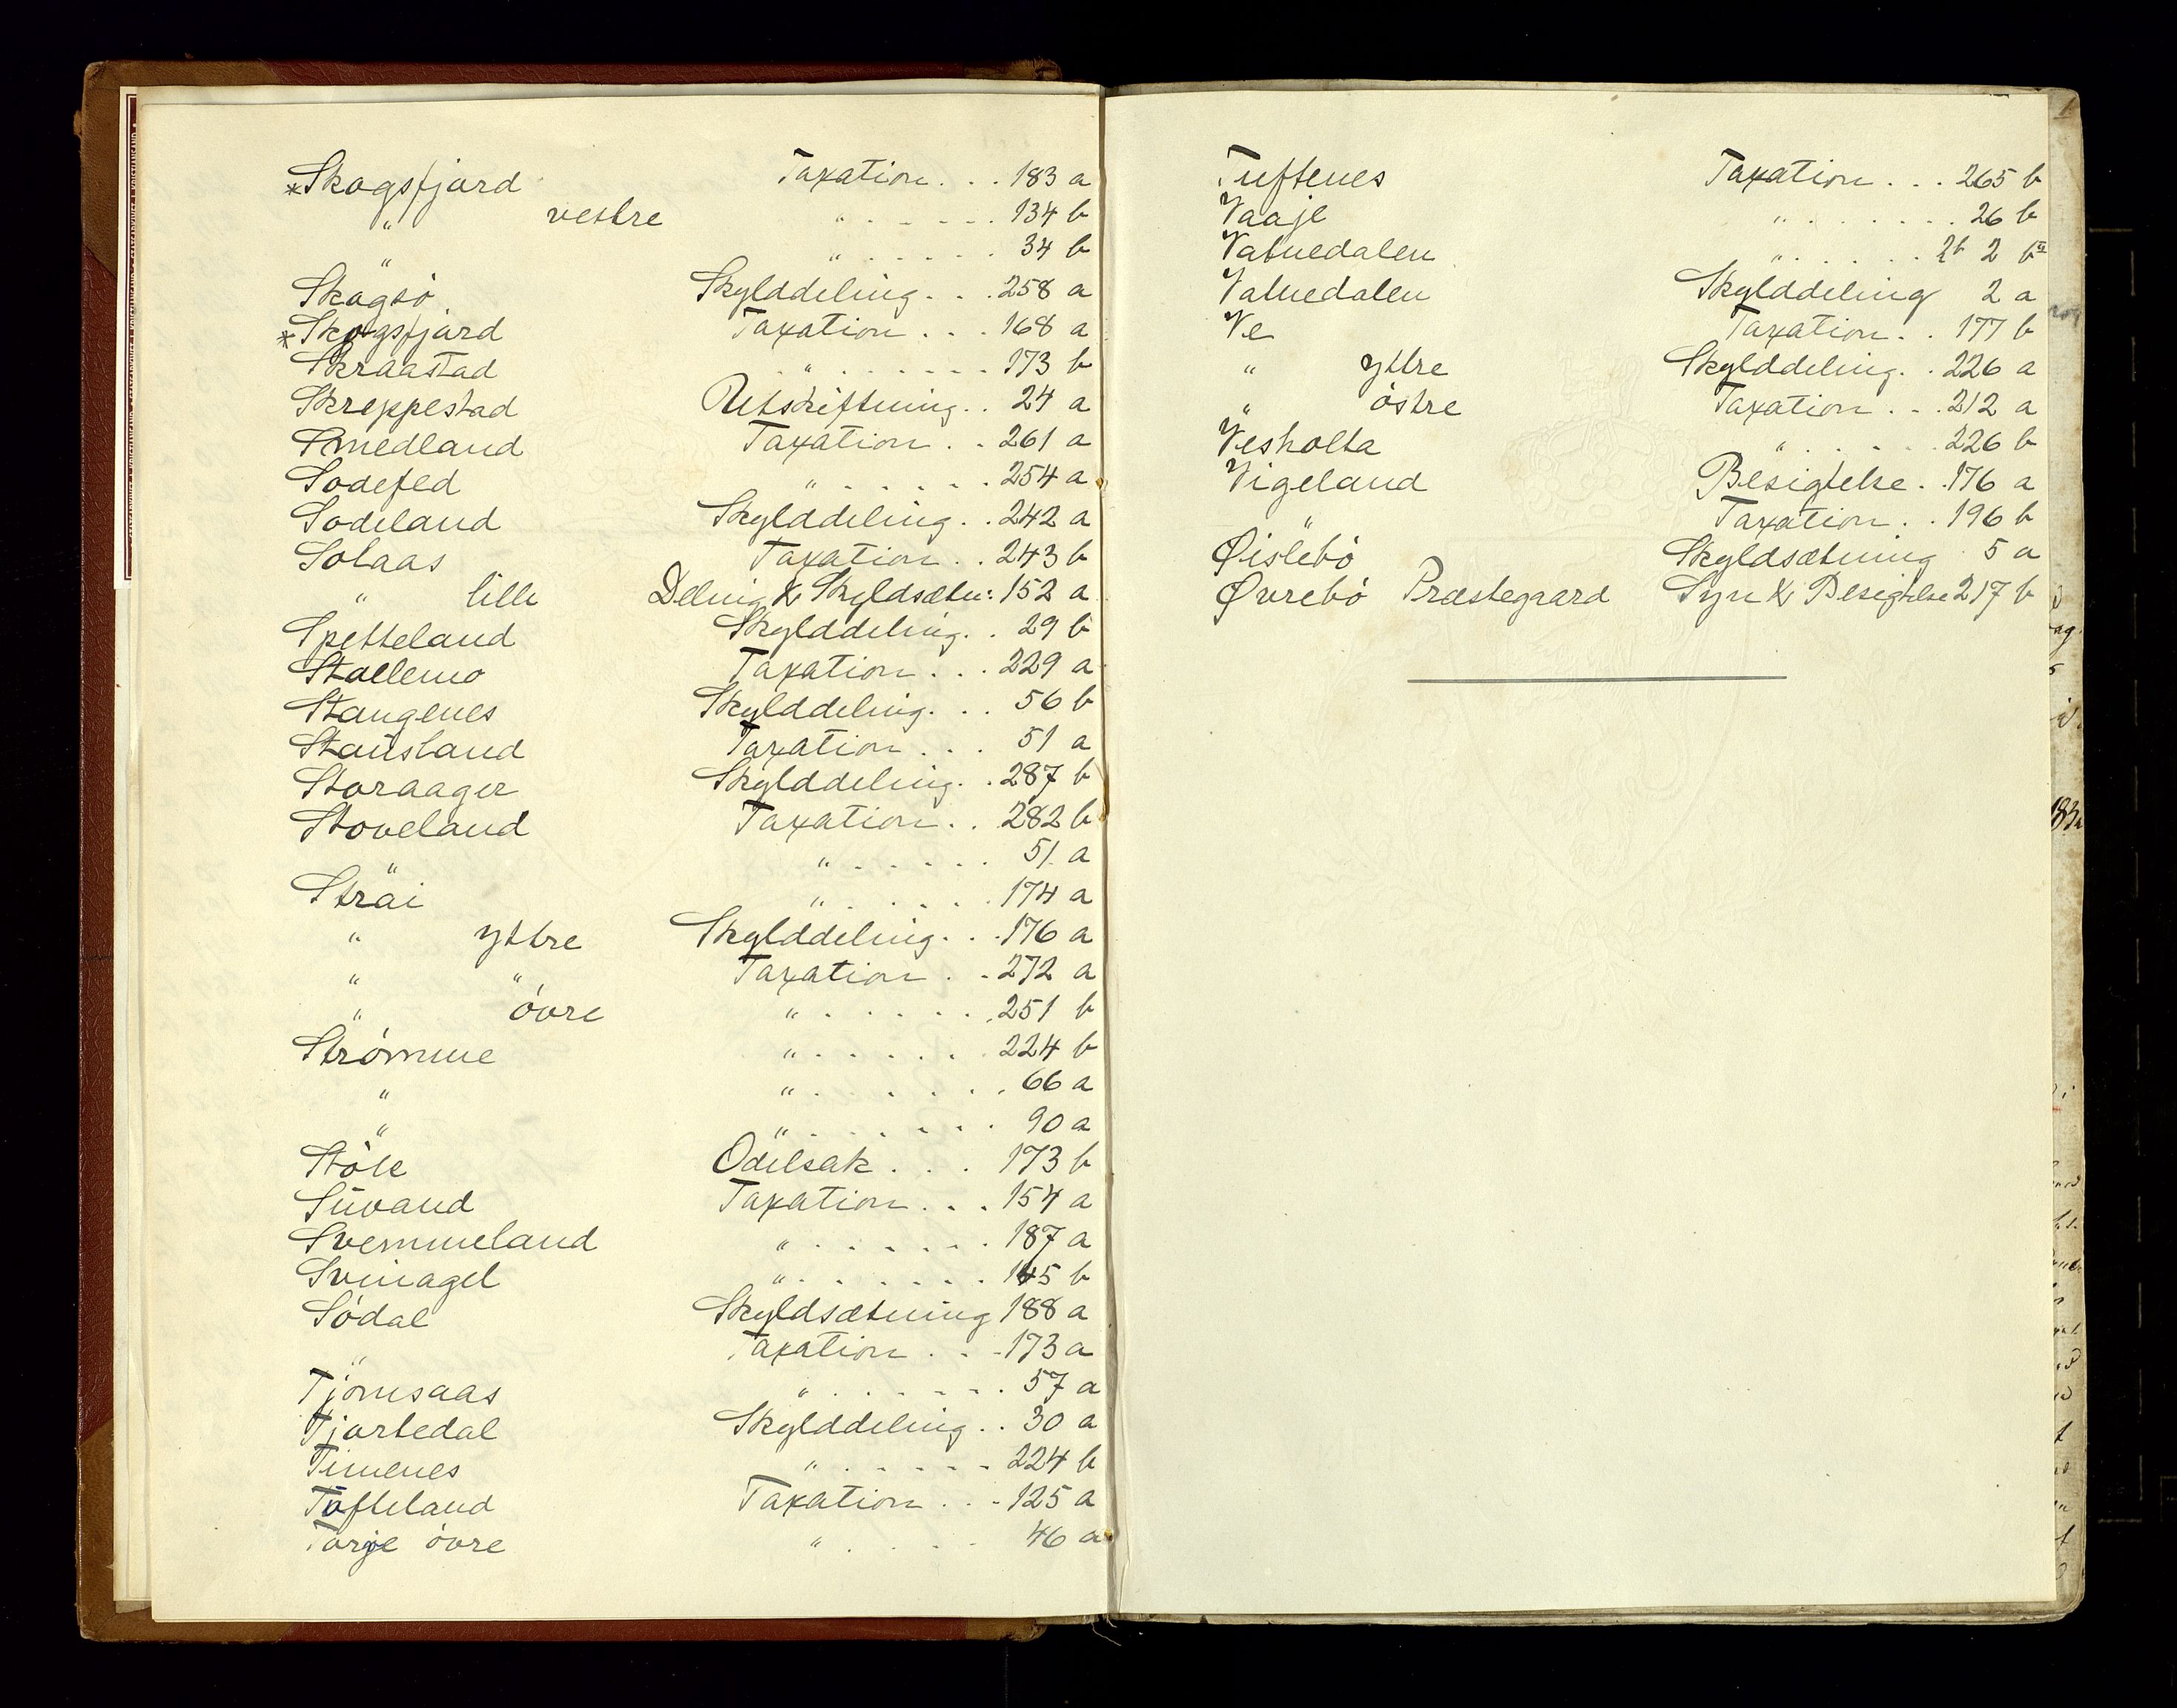 *Skogsfjord Taxation . . . 183 a
" vestre " . . . . . . 134 b
" " . . . . . 34 b
Skogsö Skylddeling . . . 258 a
*Skogsfjord Taxation . . . 168 a
Skraastad " . . . . . . 173 b
Skreppestad Utskiftning . . 24 a
Smedland Taxation . . 261 a
Sodefed " . . . . . . 254 a
Sodeland Skylddeling . . 242 a
Solaas Taxation . . 243 b
" lille Deling & Skyldsætn: 152 a
Spetteland Skylddeling . . 29 b
Stallemo Taxation . . . 229 a
Stangenes Skylddeling . . . 56 b
Stausland Taxation . . . 51 a
Storaager Skylddeling . . 287 b
Stoveland Taxation . . 282 b
" " . . . . . 51 a
Sträi " . . . . . 174 a
" yttre Skylddeling . . . 176 a
" " Taxation . . 272 a
" övre " . . . . . . 251 b
Strømme " . . . . . 224 b
" " . . . . . . 66 a
" " . . . . . . 90 a
Støle Odelsak . . . 173 b
Suvand Taxation . . . 154 a
Svemmeland " . . . . . . 187 a
Svinagel " . . . . . . 145 b
Sødal Skyldsætning 188 a
" Taxation . . . 173 a
Tjomsaas " . . . . . . 57 a
Tjortedal Skylddeling . . 30 a
Timenes " . . . . . 224 b
Tofteland Taxation . . . 125 a
Torje övre " . . . . 46 a
Tuftenes Taxation . . . 265 b
Vaaje " . . . . . . 26 b
Vatnedalen " . . . . . . 2 b
Vatnedalen Skylddeling 2 a
Ve Taxation . . 177 b
" yttre Skylddeling . . 226 a
" östre Taxation . . . 212 a
Vesholta " . . . . . 226 b
Vigeland Besigtelse . . 176 a
" Taxation . . 196 b
Øislebö Skyldsætning 5 a
Øvrebö Præstegaard Syn & Besigtelse 217 b